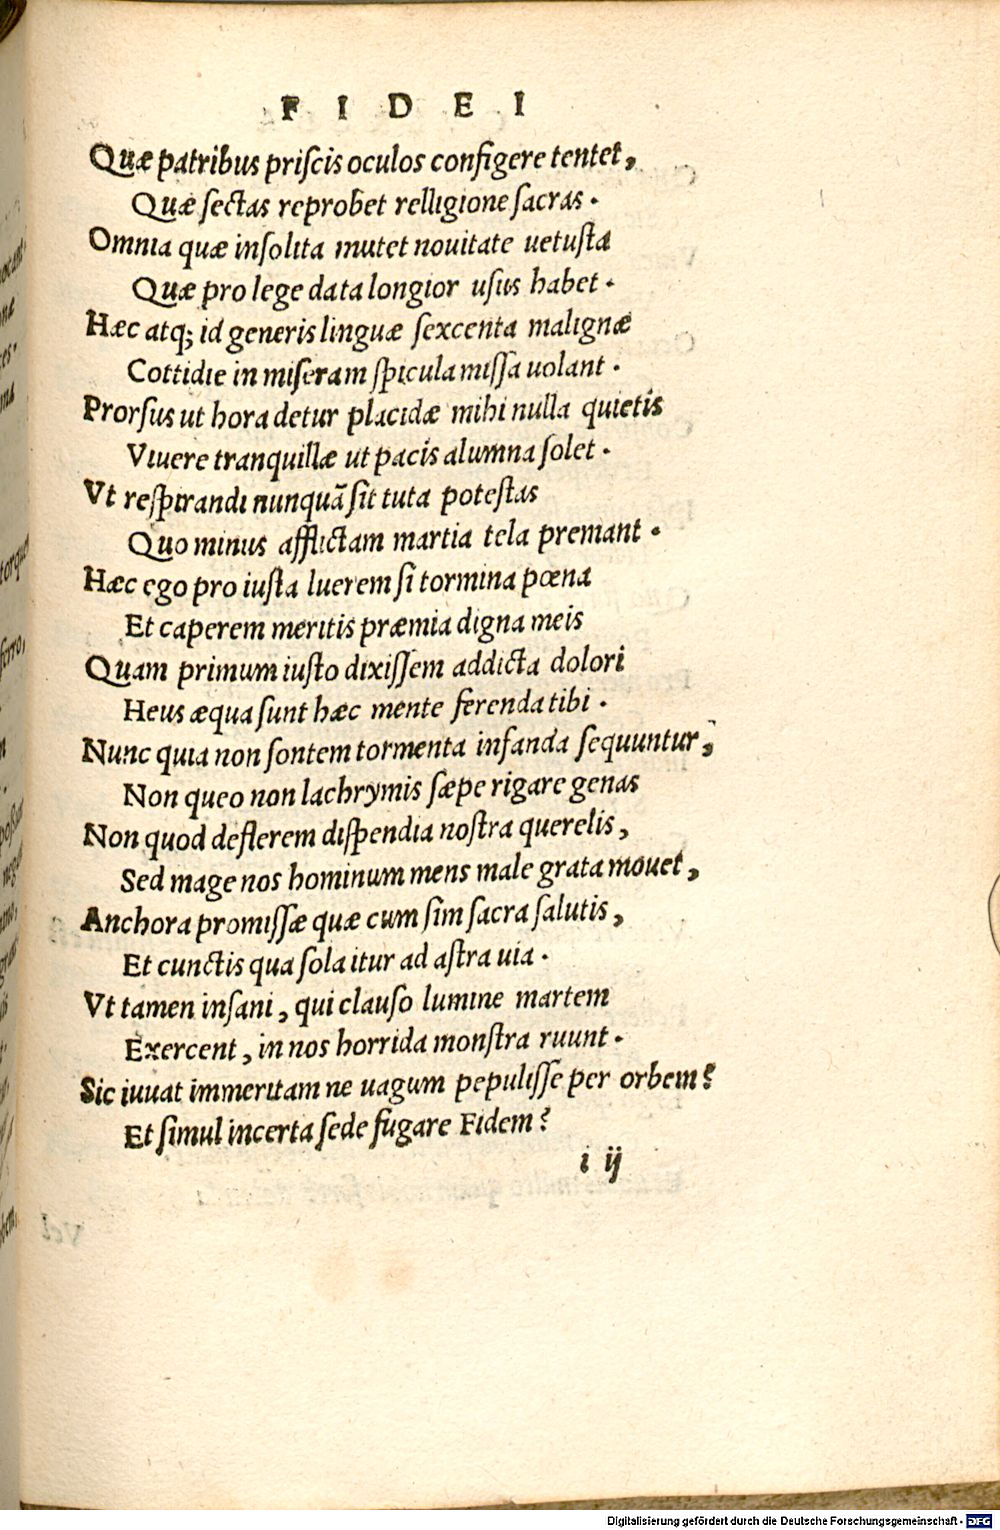 FIDEI
Quæ patribus priſcis oculos configere tentet,
Quæ ſectas reprobet relligione ſacras.
Omnia quæ inſolita mutet nouitate uetuſta
Quæ pro lege data longior uſus habet.
Hæc atq; id generis linguæ ſexcenta malignæ
Cottidie in miſeram ſpicula miſſa uolant.
Prorſus ut hora detur placidæ mihi nulla quietis
Viuere tranquillæ ut pacis alumna ſolet.
Vt reſpirandi nunquā ſit tuta poteſtas
Quo minus afflictam martia tela premant.
Hæc ego pro iuſta luerem ſi tormina pœna
Et caperem meritis præmia digna meis
Quam primum iuſto dixiſſem addicta dolori
Heus æqua ſunt hæc mente ferenda tibi.
Nunc quia non ſontem tormenta infanda ſequuntur,
Non queo non lachrymis ſæpe rigare genas
Non quod deflerem diſpendia noſtra querelis,
Sed mage nos hominum mens male grata mouet,
Anchora promiſſæ quæ cum ſim ſacra ſalutis,
Et cunctis qua ſola itur ad aſtra uia.
Vt tamen inſani, qui clauſo lumine martem
Exercent, in nos horrida monſtra ruunt.
Sic iuuat immeritam ne uagum pepuliſſe per orbem?
Et ſimul incerta ſede fugare Fidem?
i ij
Digitalisierung gefördert durch die Deutsche Forschungsgemeinschaft - DFG